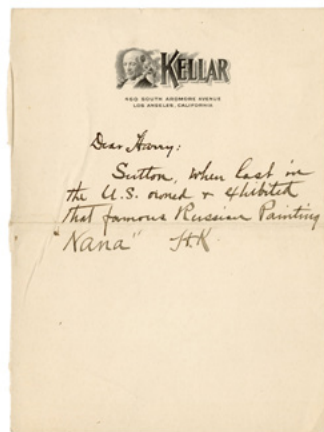 KELLAR
460 SOUTH ARDMORE AVENUE
LOS ANGELES, CALIFORNIA
Dear Harry:
Sutton, when last in
the U.S. owned & exhibited
that famous Russian Painting
"Nana" H.K.